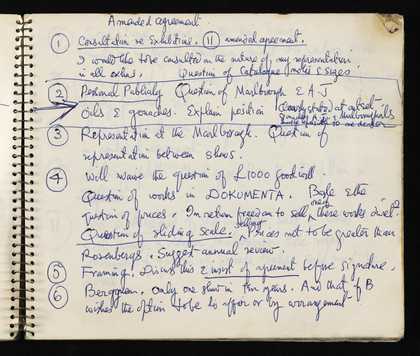 Amended agreement.
① Consultation re Exhibitions. ⑪ amended agreement.
I would like to be consulted on the nature of my representation
in all exhns. Question of Catalogue notes & sizes
② Personal Publicity Question of Marlborough & A J
Oils & gouaches. Explain position (clearly stated) at outset
to me dealer
③ Representation at the Marlborough. Question of
representation between shows.
④ Will waive the question of £1000 goodwill
Question of works in DOKUMENTA.
Question of prices. In return freedom to sell these works direct.
Question of sliding scale. Prices not to be greater than
Rosenbergs. Suggest annual review.
⑤ Framing. Discuss this & insist of agreement before signature.
⑥ Berggruen, only one show in ten years. And that if B
wishes the option to be to offer or by arrangement